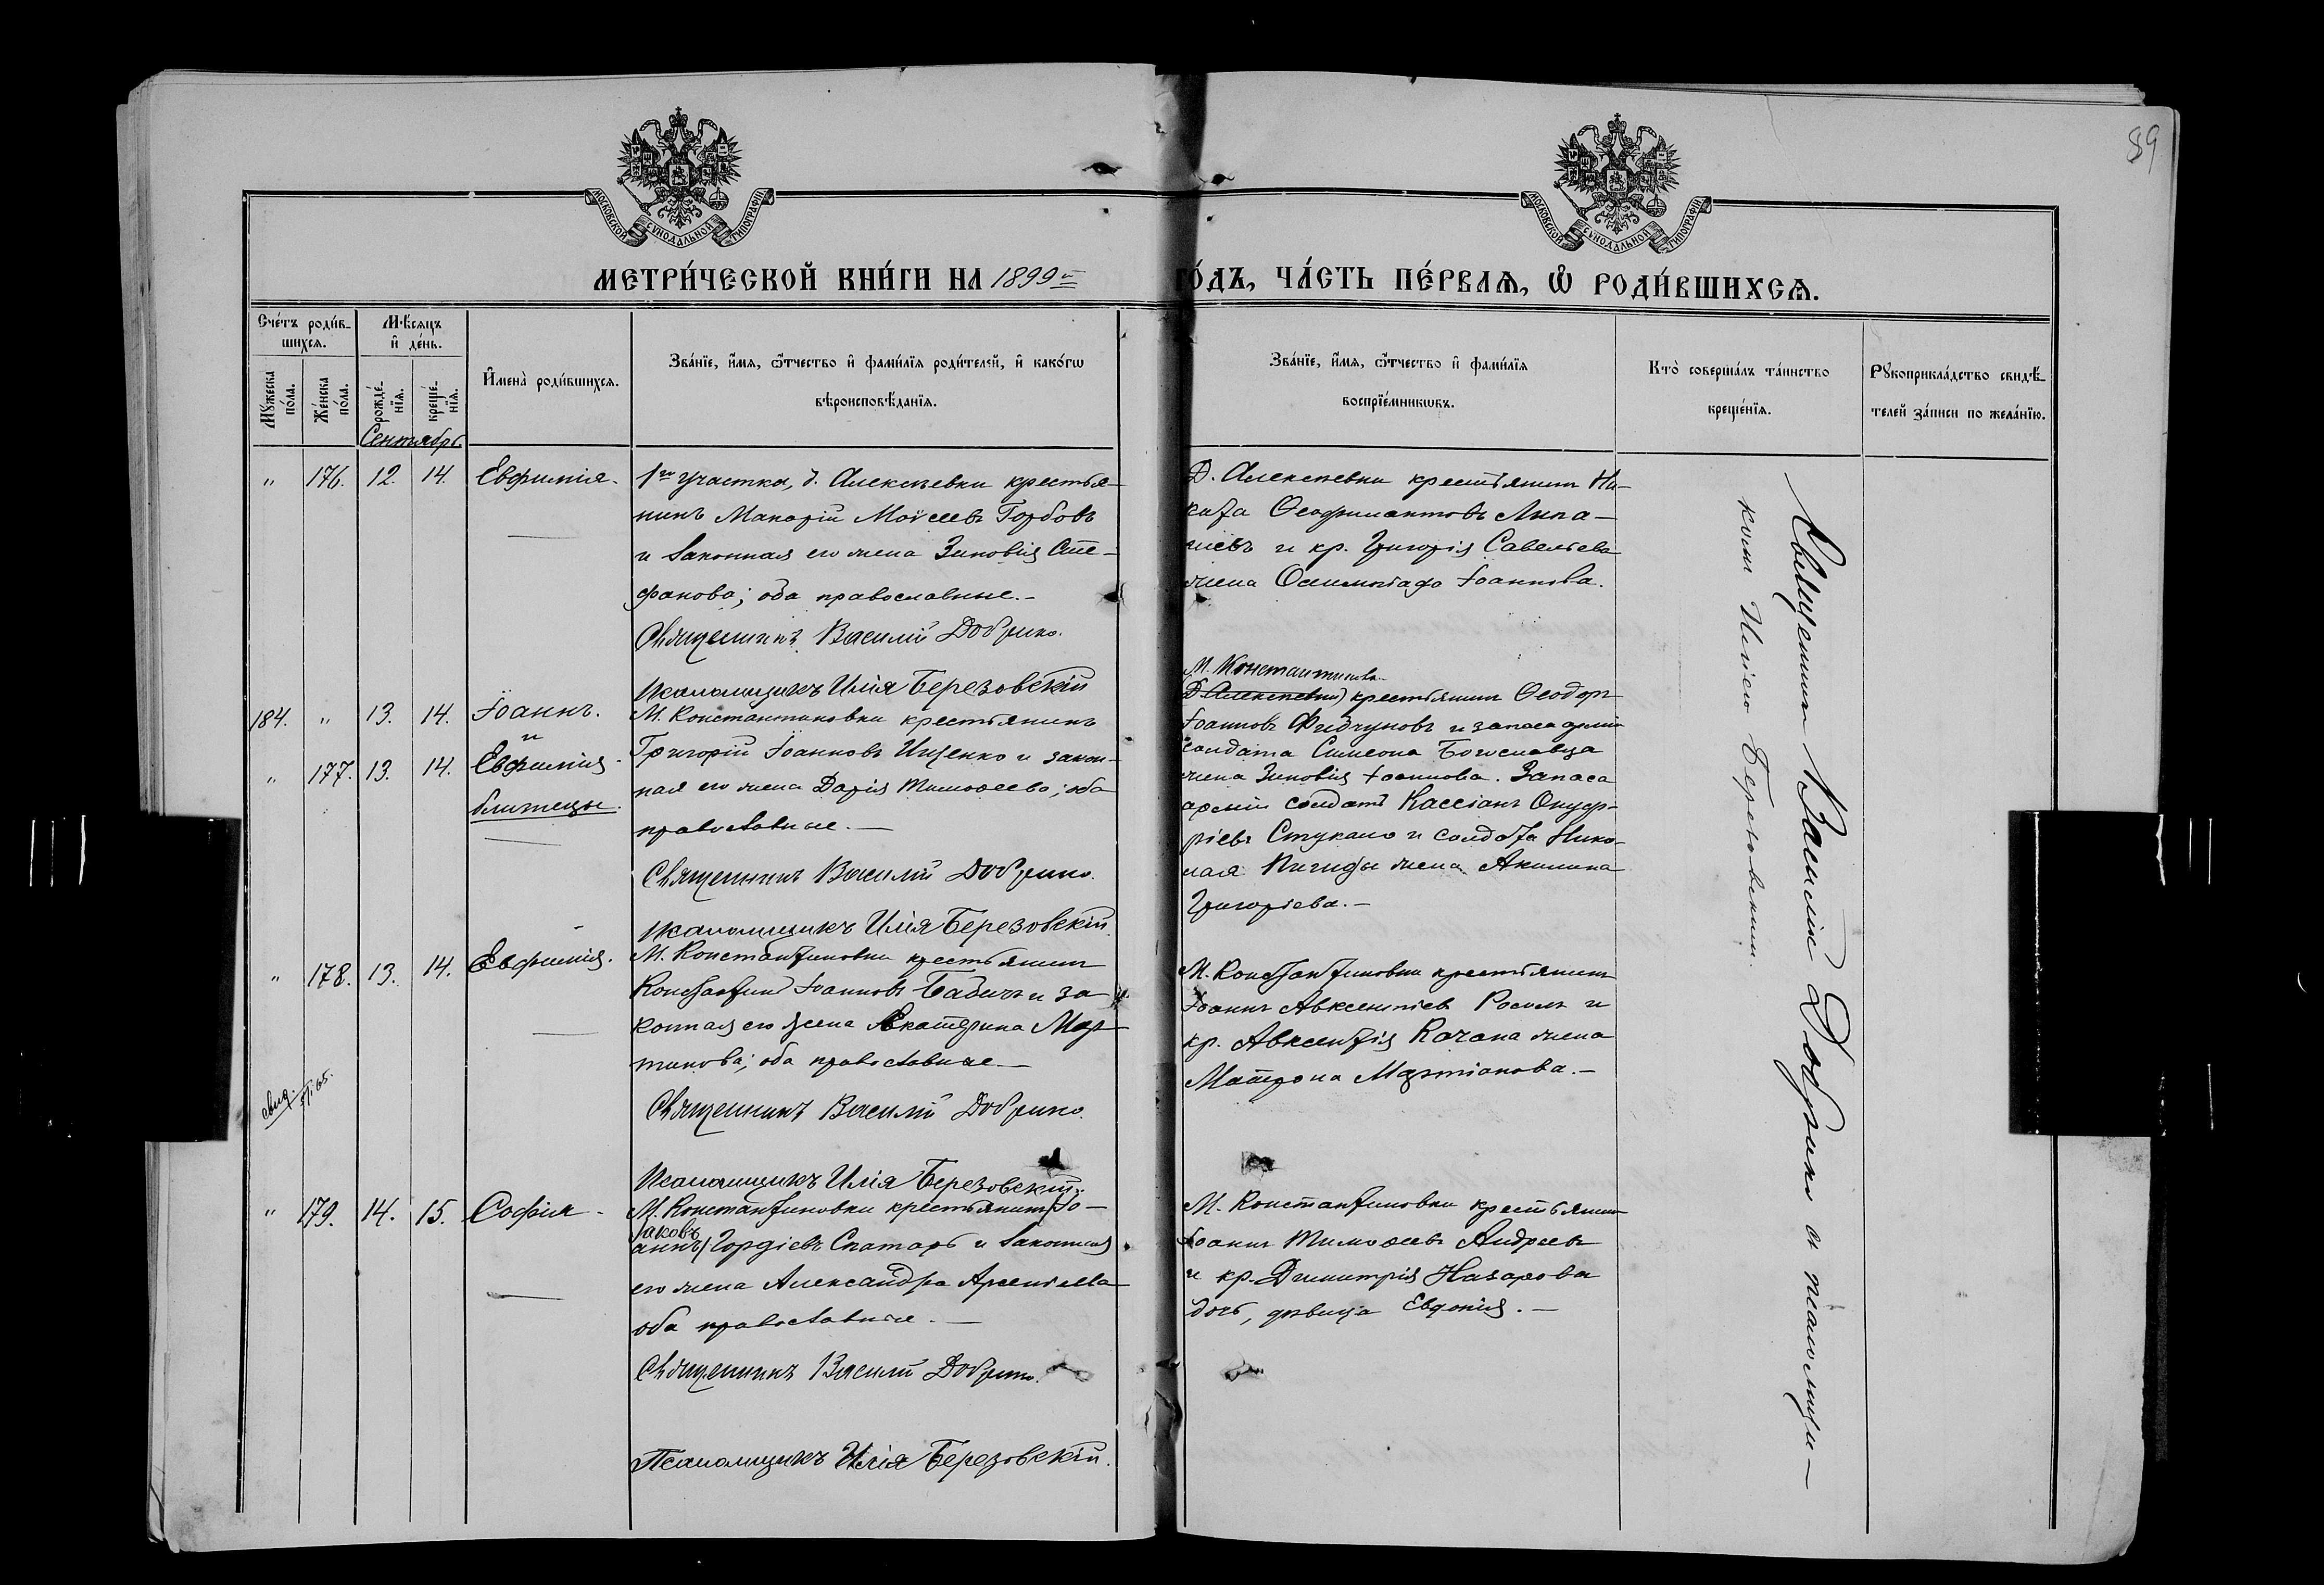 89
МОСКОВСКОЙ СѴНОДАЛЬНОЙ ТИПОГРАФІИ
МОСКОВСКОЙ СѴНОДАЛЬНОЙ ТИПОГРАФІИ
МЕТРИ́ЧЕСКОЙ КНИ́ГИ НА 1899й
ГО́ДЪ, ЧА́СТЬ ПЕ́РВАѦ, Ѡ҆ РОДИ́ВШИХСѦ.
Сче́тъ роди́в-
шихсѧ.
Мꙋ́жеска по́ла.
Же́нска по́ла.
Мѣ́сѧцъ
и҆ де́нь.
рожде́-
нїѧ.
креще́-
нїѧ.
Сентябрь.
И҆мена̀ роди́вшихсѧ.
Зва́нїе, и҆́мѧ, ѻ҆́тчество и҆ фами́лїѧ роди́телей, и҆ како́гѡ
вѣроисповѣ́данїѧ.
Зва́нїе, и҆́мѧ, ѻ҆́тчество и҆ фами́лїѧ
воспрїе́мникѡвъ.
Кто̀ соверша́лъ та́инство
креще́нїѧ.
Рꙋкоприкла́дство свидѣ́-
телей за́писи по жела́нїю.
" 176. 12. 14. Евфимія.
1го участка, д. Алексѣевки крестья-
нинъ Макарій Моѵсеевъ Горбовъ
и законная его жена Зиновія Сте-
фанова; оба православные.-
Священникъ Василій Добрино.
Псаломщикъ Илія Березовскій
Д. Алексѣевки крестьянинъ Ни-
кита Ѳеофилактовъ
и кр. Григорія Савельева
жена Іоаннова.
184. " 13. 14. Іоаннъ.
и
" 177. 13. 14. Евфимія
близнецы.
М. Константиновки крестьянинъ
Григорій Іоанновъ Ищенко и закон-
ная его жена Дарія Тимоѳеева; оба
православные.-
Священникъ Василій Добрино.
Псаломщикъ Илія Березовскій.
М. Константиновки
Д. Алексѣевки) крестьянинъ Ѳеодоръ
Іоанновъ Фидчуновъ и запаса арміи
солдата Симеона Богославца
жена Зиновія Іоаннова. Запаса
арміи солдатъ Кассіанъ Онуф-
ріевъ Стукало и солдата Нико-
лая жена Акилина
Григоріева.-
" 178. 13. 14. Евфимія.
М. Константиновки крестьянинъ
Константинъ Іоанновъ Бабичъ и за-
конная его жена Екатерина Мар-
тинова; оба православные-
Священникъ Василій Добрино.
Псаломщикъ Илія Березовскій.
М. Константиновки крестьянинъ
Іоаннъ Авксентіевъ и
кр. Авксентія Качана жена
Матрона Мартіанова.-
" 179. 14. 15. Софія-
М. Константиновки крестьянинъ (Іо-
Іаковъ
аннъ) Гордіевъ Спатарь и законная
его жена Александра Арсеніева
оба православные.-
Священникъ Василій Добрино.
Псаломщикъ Илія Березовскій.
М. Константиновки крестьянинъ
Іоаннъ Тимоѳеевъ Андреевъ
и кр. Димитрія Назарова
дочь, дѣвица Евдокія.-
Священникъ Василій Добрино съ псаломщи-
комъ Иліею Березовскимъ.